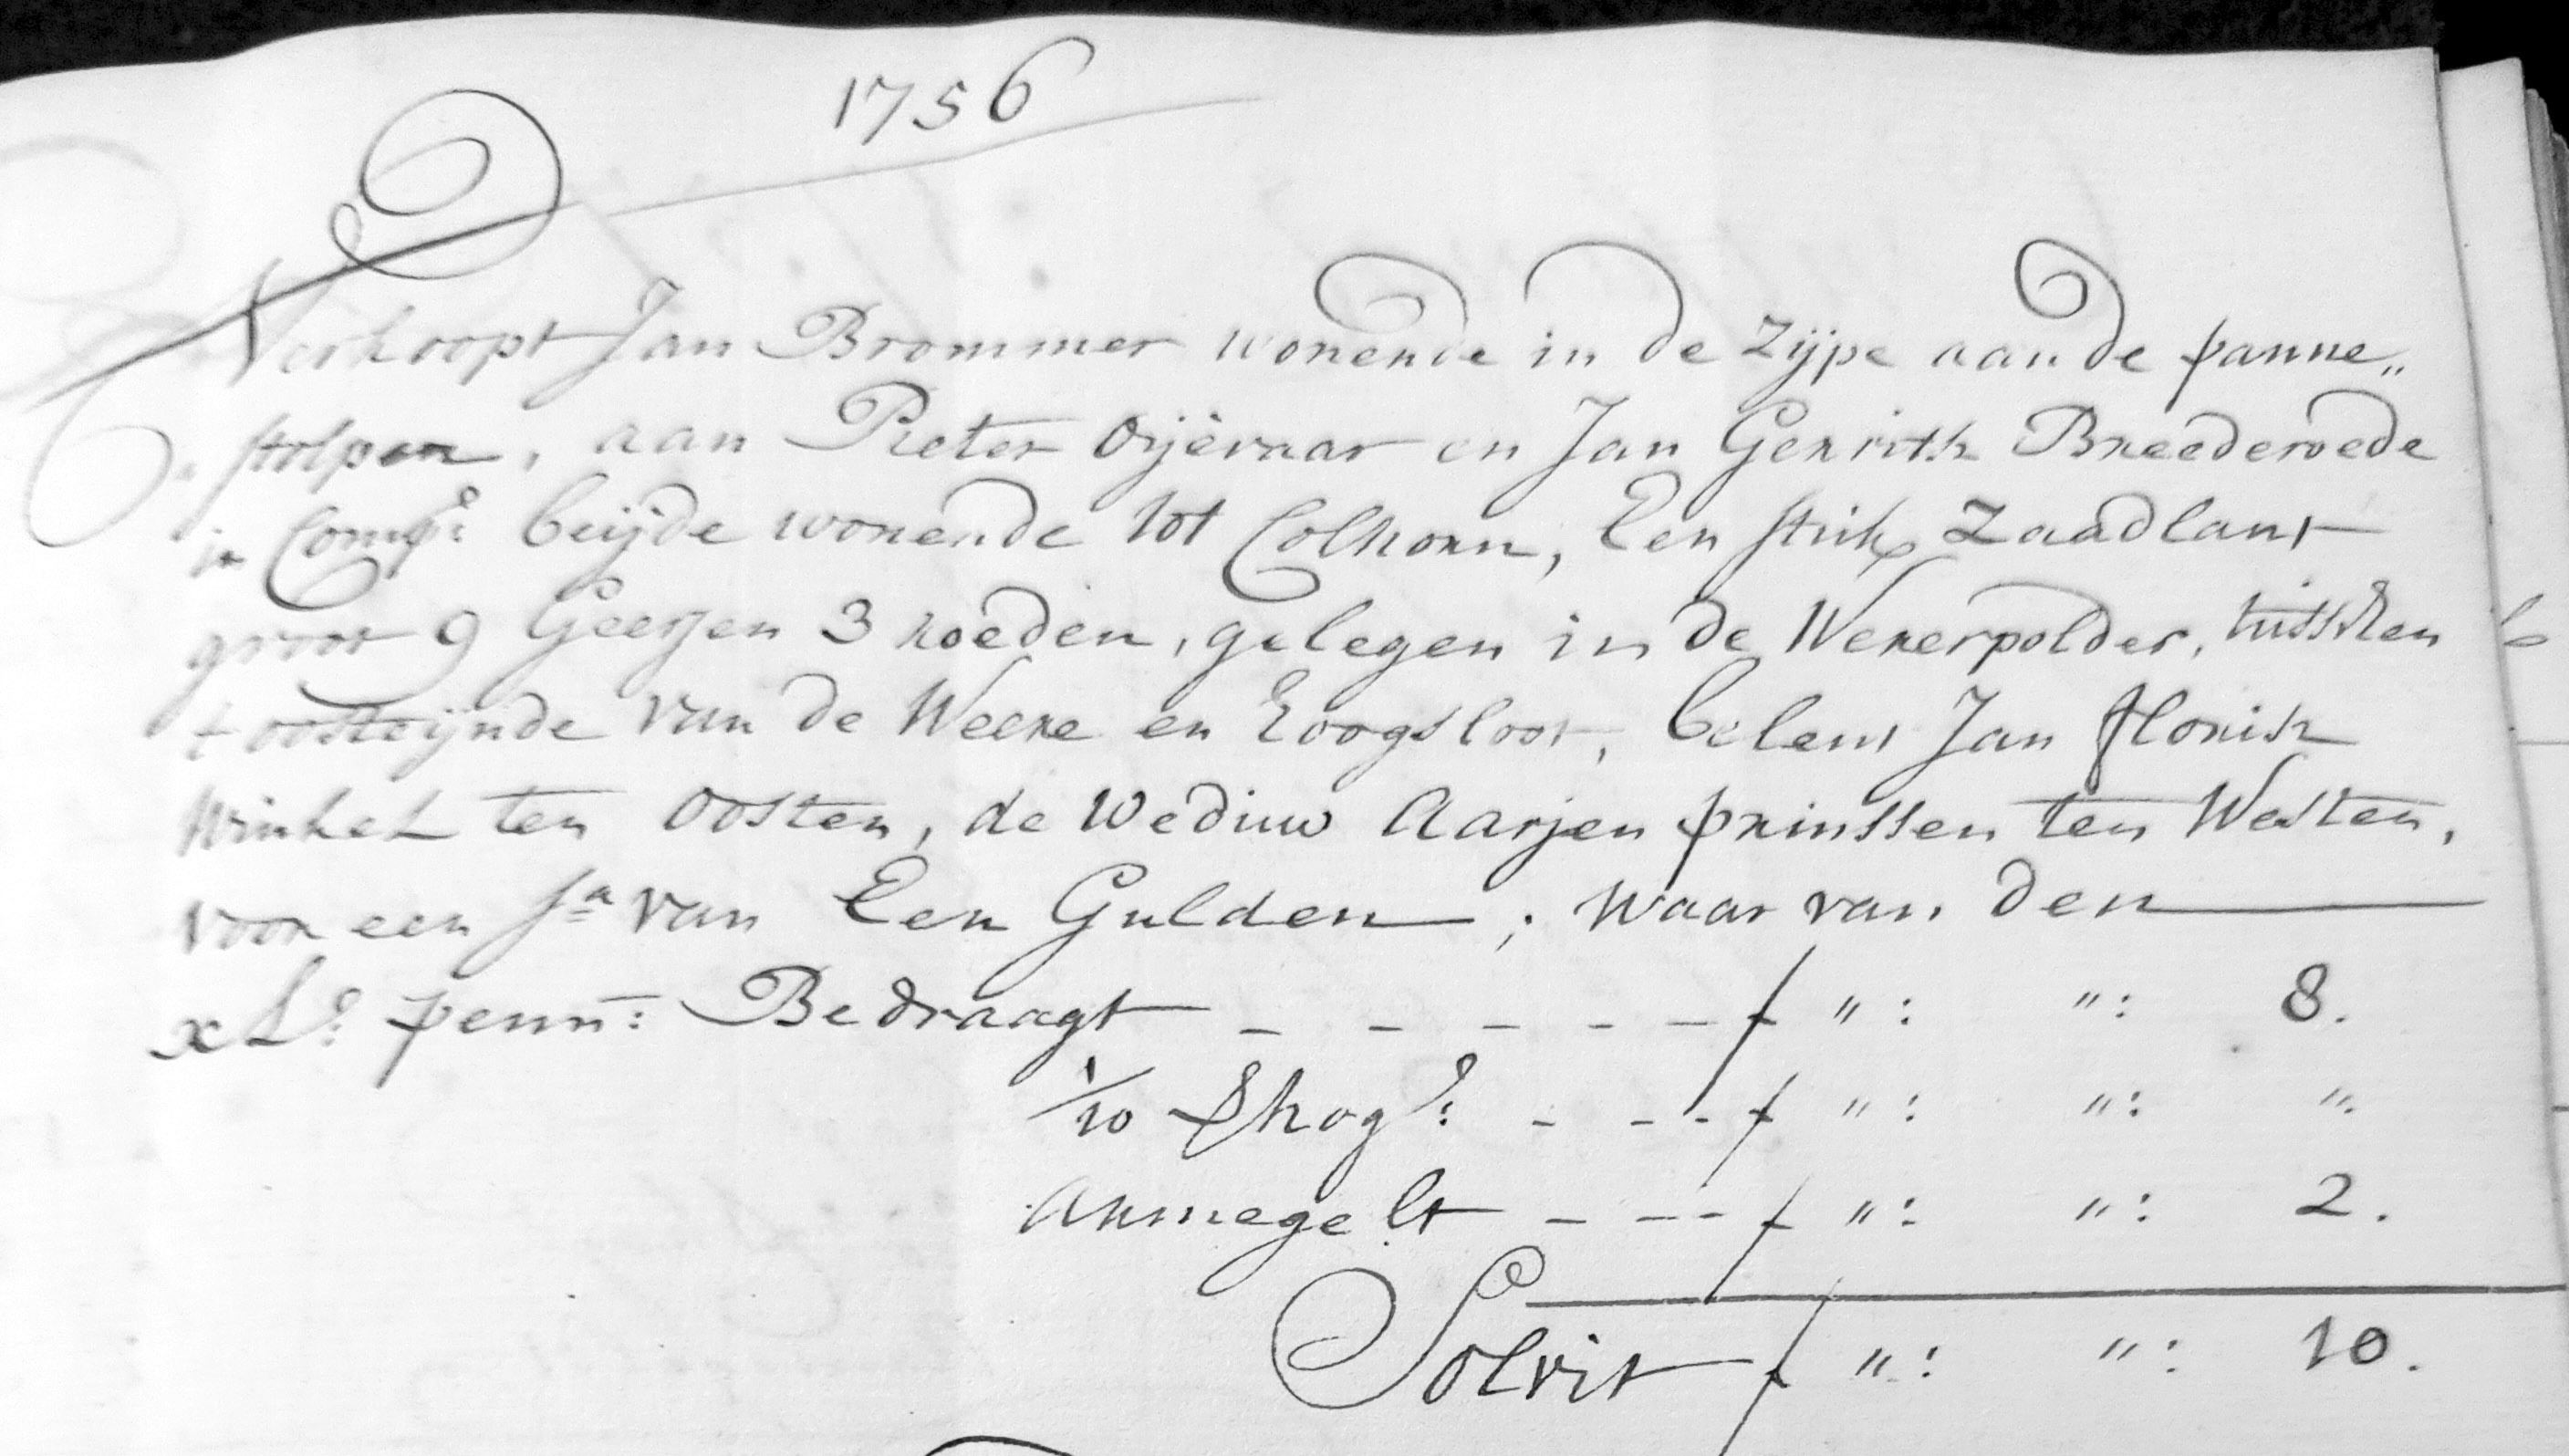 1756
Verkoopt Jan Brommer wonende in de Zijpe aan de panne„
„stolpen, aan Pieter Oijevaar en Jan Gerritsz Breederoede
in Compe: beijde wonende tot Colhorn, Een stuk Zaadlant
groot 9 Geersen 3 roeden, gelegen in de Werepolder, tusschen
t oosteijnde van de Weere en Hoogsloot, belent Jan florisz
Winkel ten Oosten, de Weduw Aarjen prinssen ten Westen,
voor een sa van Een Gulden; waar van den
xLe: penn: Bedraagt - - - - - f „: „: 8.
1/10 Vhoge: - - - f „: „: „.
Armegelt - - - f „: „: 2.
Solvit f „: „: 10.